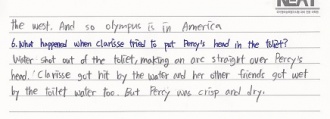 NEAT
the west. And so olympus is in America
6. What happened when Clarisse tried to put Percy's head in the toilet?
Water shot out of the toliet, making an arc straight over Percy's
head. Clarisse got hit by the water and her other friends got wet
by the toilet water too. But Percy was crisp and dry.